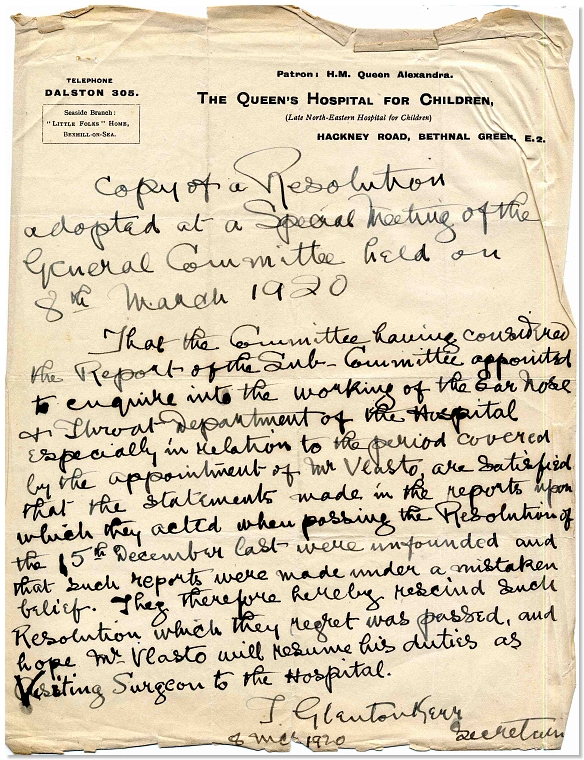 TELEPHONE
DALSTON 305.
Seaside Branch:
"LITTLE FOLKS" HOME,
BEXHILL-ON-SEA.
Patron: H.M. Queen Alexandra.
THE QUEEN'S HOSPITAL FOR CHILDREN,
(Late North-Eastern Hospital for Children)
HACKNEY ROAD, BETHNAL GREEN, E.2.
Copy of a Resolution
adopted at a Special Meeting of the
General Committee held on
8th March 1920
That the Committee having considered
the Report of the Sub-Committee appointed
to enquire into the working of the Ear Nose
& Throat Department of the Hospital
especially in relation to the period covered
by the appointment of Mr Vlasto, are satisfied
that the statements made in the reports upon
which they acted when passing the Resolution of
the 15th December last were unfounded and
that such reports were made under a mistaken
belief. They therefore hereby rescind such
Resolution which they regret was passed, and
hope Mr Vlasto will resume his duties as
Visiting Surgeon to the Hospital.
T. Glenton Kerr
Secretary
8 Mch 1920